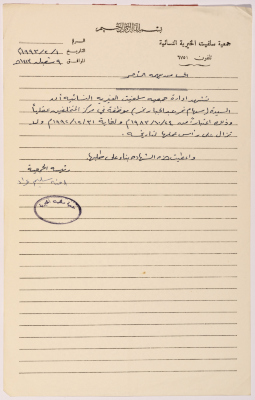 بسم الله الرحمن الرحيم
جمعية سلفيت الخيرية النسائية
تلفون ٦٧٥١
الرقم
التاريخ ١٩٩٣/٢/١
الموافق ٩ شعبان ١٤١٣ هـ
تشهد ادارة جمعية سلفيت الخيرية النسائية أن
السيدة موظفة في مركز المتخلفين عقلياً
وذلك اعتباراً من ولغاية ١٩٩٢/١٢/٣١ ولا
تزال على رأس عملها لتاريخه .
وأعطيت هذه الشهادة بناء على طلبها .
رئيسة الجمعية
جمعية سلفيت الخيرية